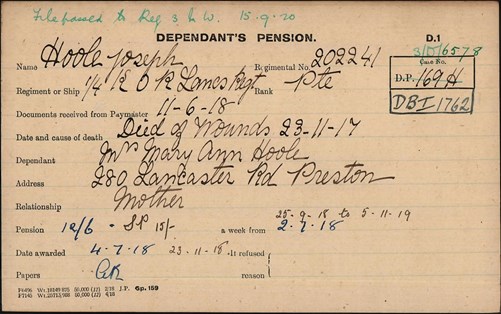 File passed to Reg 3. L W. 15-9-20
DEPENDANT'S PENSION.
D.1
Name Hoole Joseph Regimental No. 202241
3/D/6578
Case No.
D.P. 169 H
Regiment or Ship 1/4 K O R Lancs Regt Rank Pte
DBI 1762
Documents received from Paymaster 11-6-18
Date and cause of death Died of Wounds 23-11-17
Dependant Mrs Mary Ann Hoole
Address 280 Lancaster Rd Preston
Relationship Mother
25-9-18 to 5-11-19
Pension 12/6 - SP 15/- a week from 2-7-18
Date awarded 4-7-18 23-11-18 If refused
Papers reason
P6496 6p. 159